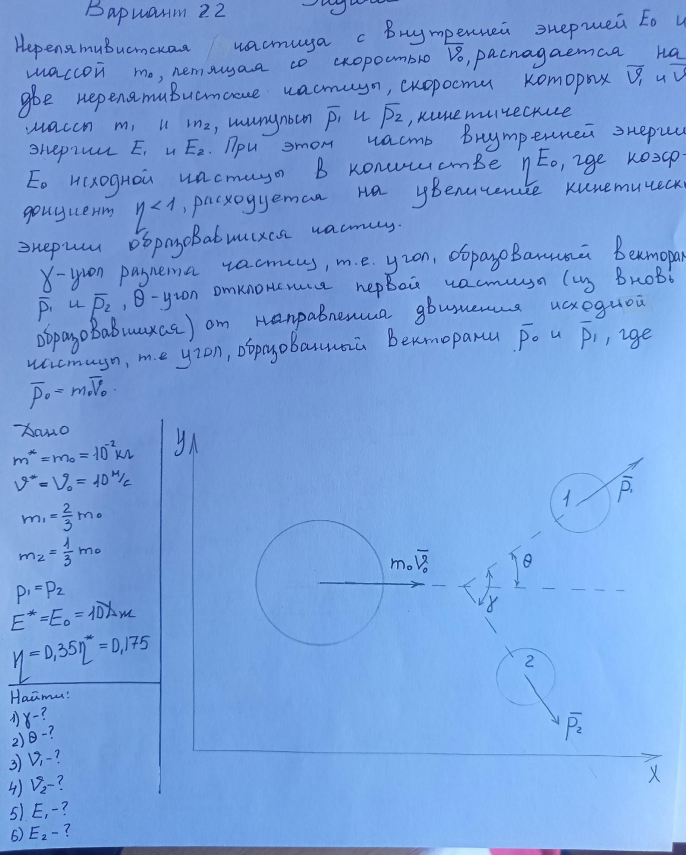 Вариант 22
Нерелятивистская частица с внутренней энергией E₀ и
массой m₀, летящая со скоростью v̄₀, распадается на
две нерелятивистские частицы, скорости которых v̄₁ и v̄
массы m₁ и m₂, импульсы p̄₁ и p̄₂, кинетические
энергии E₁ и E₂. При этом часть внутренней энергии
E₀ исходной частицы в количестве ηE₀, где коэф-
фициент η<1, расходуется на увеличение кинетическ
энергии образовавшихся частиц.
γ-угол разлета частиц, т.е. угол, образованный векторам
p̄₁ и p̄₂, θ-угол отклонения первой частицы (из вновь
образовавшихся) от направления движения исходной
частицы, т.е угол, образованный векторами p̄₀ и p̄₁, где
p̄₀ = m₀v̄₀.
Дано
m* = m₀ = 10⁻² кг
v* = v₀ = 10 м/с
m₁ = 2/3 m₀
m₂ = 1/3 m₀
p₁ = p₂
E* = E₀ = 10Дж
η = 0,35η* = 0,175
Найти:
1) γ-?
2) θ-?
3) v₁-?
4) v₂-?
5) E₁-?
6) E₂-?
y
1
p̄₁
m₀v̄₀
θ
γ
2
p̄₂
X